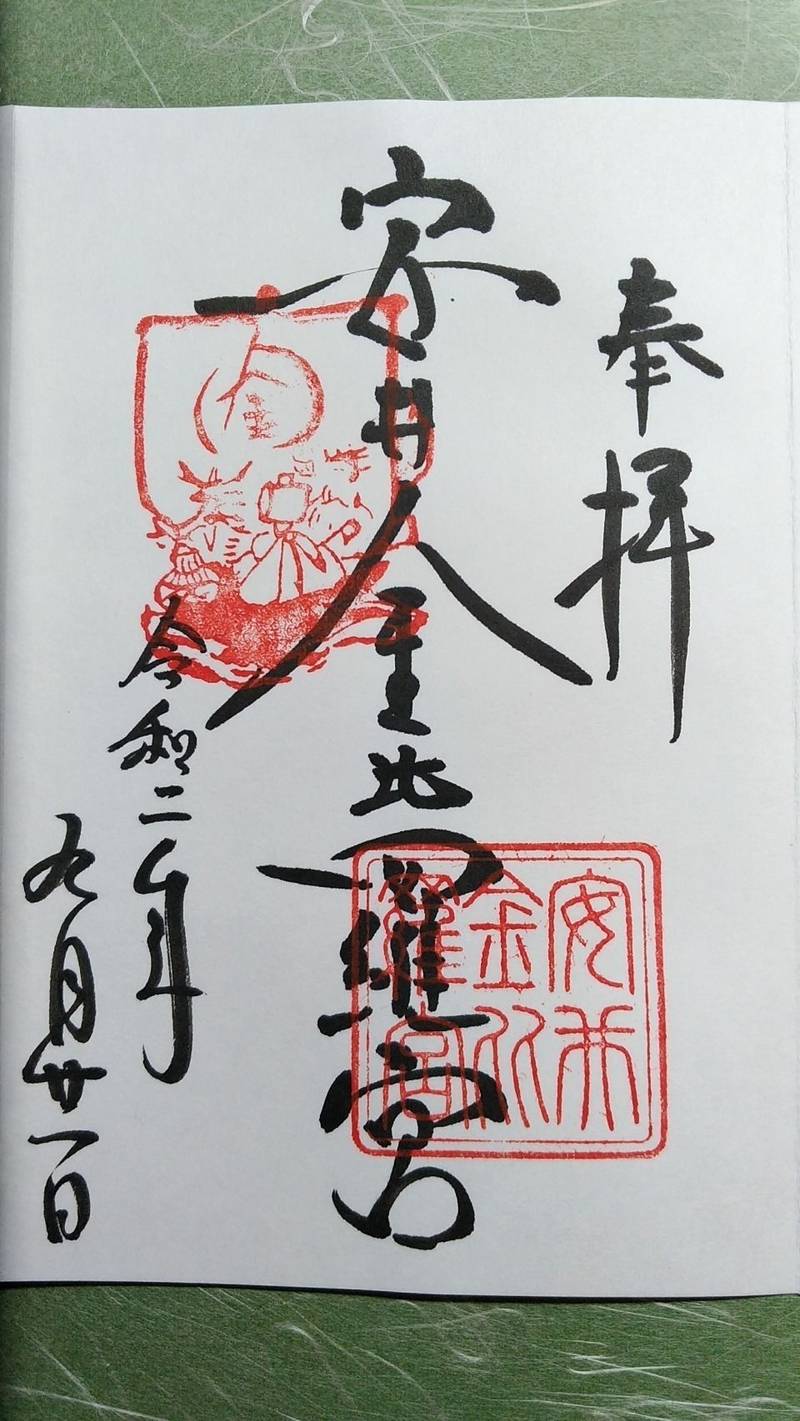 奉拝
安井金比羅宮
令和二年
九月廿一日
金
安井
金比
羅宮